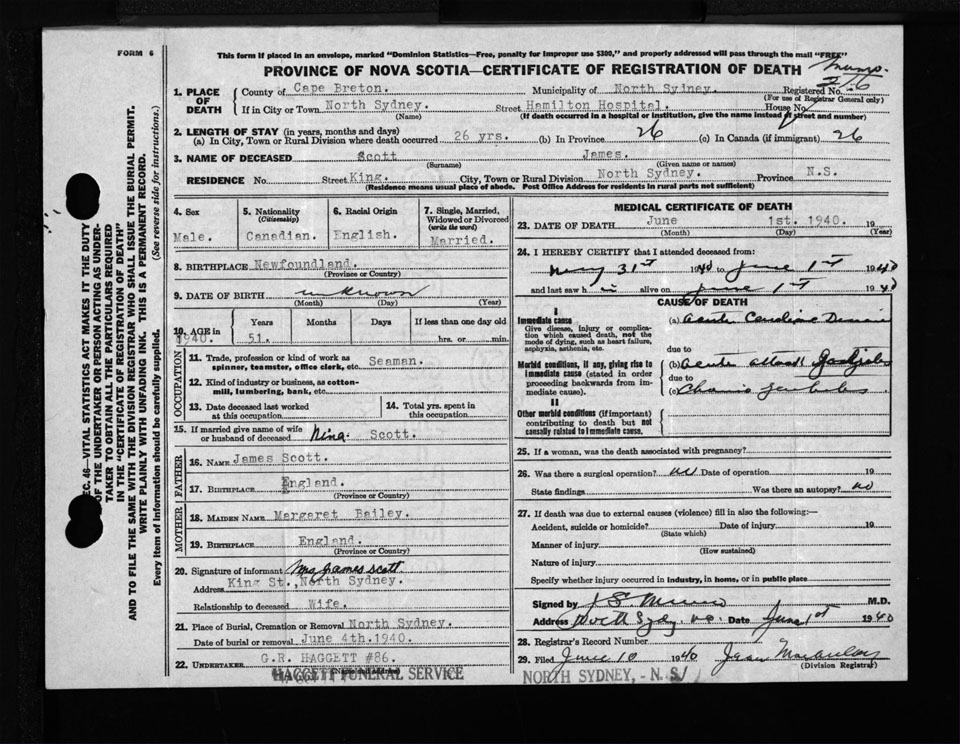 FORM 6
This form if placed in an envelope, marked "Dominion Statistics—Free, penalty for improper use $300," and properly addressed will pass through the mail "FREE"
PROVINCE OF NOVA SCOTIA—CERTIFICATE OF REGISTRATION OF DEATH
1. PLACE OF DEATH
County of Cape Breton. Municipality of North Sydney. Registered No.
(For use of Registrar General only)
If in City or Town North Sydney. Street Hamilton Hospital. House No.
(Name) (If death occurred in a hospital or institution, give the name instead of street and number)
2. LENGTH OF STAY (in years, months and days)
(a) In City, Town or Rural Division where death occurred 26 yrs. (b) In Province 26 (c) In Canada (if immigrant) 26
3. NAME OF DECEASED Scott James.
(Surname) (Given name or names)
RESIDENCE No. Street King. City, Town or Rural Division North Sydney. Province N.S.
(Residence means usual place of abode. Post Office Address for residents in rural parts not sufficient)
4. Sex
Male.
5. Nationality
(Citizenship)
Canadian.
6. Racial Origin
English.
7. Single, Married, Widowed or Divorced
(write the word)
Married.
8. BIRTHPLACE Newfoundland.
(Province or Country)
9. DATE OF BIRTH unknown
(Month) (Day) (Year)
10. AGE in 1940.
Years Months Days If less than one day old
51. hrs. or min.
OCCUPATION
11. Trade, profession or kind of work as spinner, teamster, office clerk, etc. Seaman.
12. Kind of industry or business, as cotton-mill, lumbering, bank, etc.
13. Date deceased last worked at this occupation
14. Total yrs. spent in this occupation
15. If married give name of wife or husband of deceased Nina. Scott.
FATHER
16. NAME James Scott.
17. BIRTHPLACE England.
(Province or Country)
MOTHER
18. MAIDEN NAME Margaret Bailey.
19. BIRTHPLACE England.
(Province or Country)
20. Signature of informant Mrs James Scott
Address King St., North Sydney.
Relationship to deceased Wife.
21. Place of Burial, Cremation or Removal North Sydney.
Date of burial or removal June 4th.1940.
22. UNDERTAKER G.R. HAGGETT #86.
HAGGETT FUNERAL SERVICE
MEDICAL CERTIFICATE OF DEATH
23. DATE OF DEATH June 1st. 1940. 19
(Month) (Day) (Year)
24. I HEREBY CERTIFY that I attended deceased from:
May 31st 1940 to June 1st 1940
and last saw h alive on June 1st 1940
CAUSE OF DEATH
I
Immediate cause
Give disease, injury or complication which caused death, not the mode of dying, such as heart failure, asphyxia, asthenia, etc.
(a) Acute
due to
Morbid conditions, if any, giving rise to immediate cause (stated in order proceeding backwards from immediate cause).
(b) Acute
due to
(c)
II
Other morbid conditions (if important) contributing to death but not causally related to immediate cause.
25. If a woman, was the death associated with pregnancy?
26. Was there a surgical operation? no Date of operation 19
State findings Was there an autopsy? no
27. If death was due to external causes (violence) fill in also the following:—
Accident, suicide or homicide? Date of injury 19
(State which)
Manner of injury
(How sustained)
Nature of injury
Specify whether injury occurred in industry, in home, or in public place
Signed by M.D.
Address North Sydney N.S. Date June 1st 1940
28. Registrar's Record Number
29. Filed June 10 1940
(Division Registrar)
NORTH SYDNEY, - N. S.
SEC. 46—VITAL STATISTICS ACT MAKES IT THE DUTY
OF THE UNDERTAKER OR PERSON ACTING AS UNDER-
TAKER TO OBTAIN ALL THE PARTICULARS REQUIRED
IN THE "CERTIFICATE OF REGISTRATION OF DEATH"
AND TO FILE THE SAME WITH THE DIVISION REGISTRAR WHO SHALL ISSUE THE BURIAL PERMIT.
WRITE PLAINLY WITH UNFADING INK. THIS IS A PERMANENT RECORD.
Every item of information should be carefully supplied. (See reverse side for instructions.)